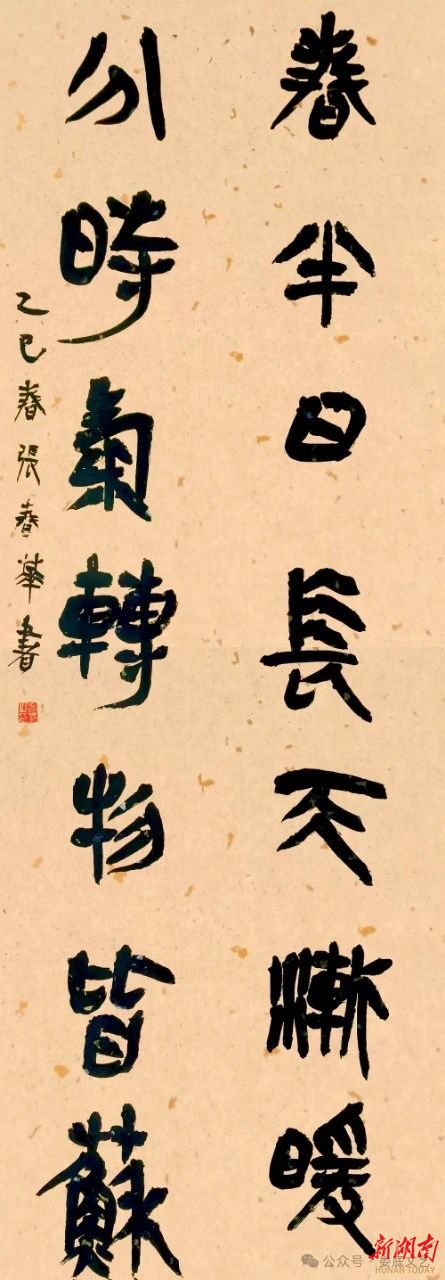 春半日長天漸暖
分時氣轉物皆蘇
乙巳春張春華書
公众号·娄底文艺
新湖南
HUNAN TODAY